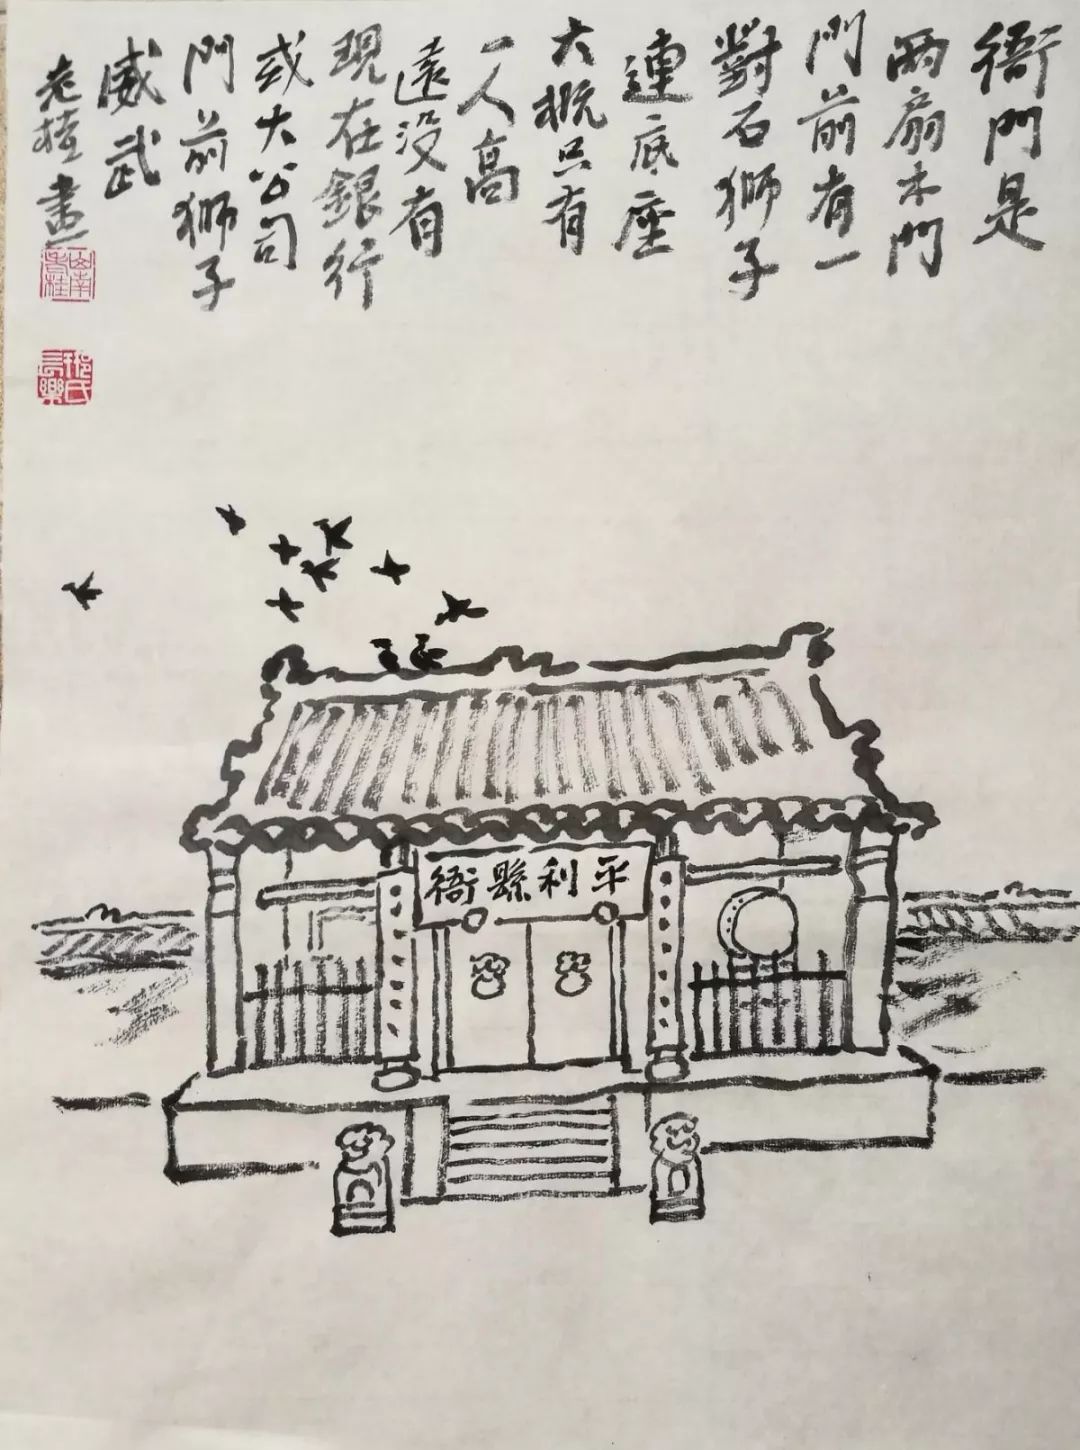 衙門是
兩扇木門
門前有一
對石獅子
連底座
大概只有
一人高
遠沒有
現在銀行
或大公司
門前獅子
威武
老桂畫
山南老桂
平利縣衙